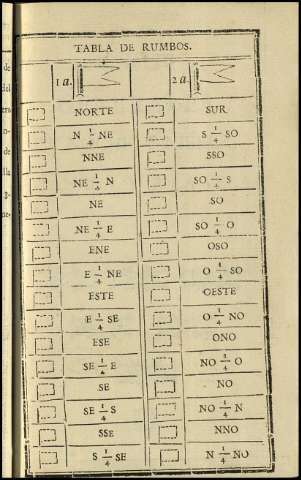 TABLA DE RUMBOS.
1a. 2a.
NORTE SUR
N 1/4 NE S 1/4 SO
NNE SSO
NE 1/4 N SO 1/4 S
NE SO
NE 1/4 E SO 1/4 O
ENE OSO
E 1/4 NE O 1/4 SO
ESTE OESTE
E 1/4 SE O 1/4 NO
ESE ONO
SE 1/4 E NO 1/4 O
SE NO
SE 1/4 S NO 1/4 N
SSE NNO
S 1/4 SE N 1/4 NO